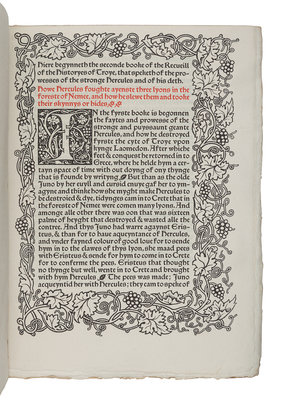 Here begynneth the seconde booke of the Recueill
of the Historyes of Troye, that speketh of the pro-
wesses of the stronge Hercules and of his deth.
Howe Hercules foughte ayenste three lyons in the
foreste of Nemee, and how he slewe them and tooke
their skynnys or hides
IN the fyrste booke is begonnen
the faytes and prowesse of the
stronge and puyssaunt geante
Hercules, and how he destroyed
fyrste the cyte of Troye vpon
kynge Laomedon. After whiche
fait & conquest he retorned in to
Grece, where he helde hym a cer-
tayn space of tyme with out doyng of ony thynge
that is founde by writyng But than as the olde
Juno by her euyll and cursid muyr gaf her to ym-
agyne and thinke how she myght make Hercules to
be destroied & dye, tidynges cam in to Crete that in
the foreste of Nemee were comen many lyons. And
amonge alle other there was oon that was sixteen
palme of heyght that destroyed & wasted alle the
contre. And thys Juno had warre agaynst Eris-
teus, & than for to haue aqueyntance of Hercules,
and vnder fayned colour of good loue for to sende
hym in to the clawes of thys lyon, she maad pees
with Eristeus & sende for hym to come in to Crete
for to conferme the pees. Eristeus that thought
no thynge but well, wente in to Crete and brought
with hym Hercules The pees was made; Juno
acqueyntid her with Hercules; they cam to speke of